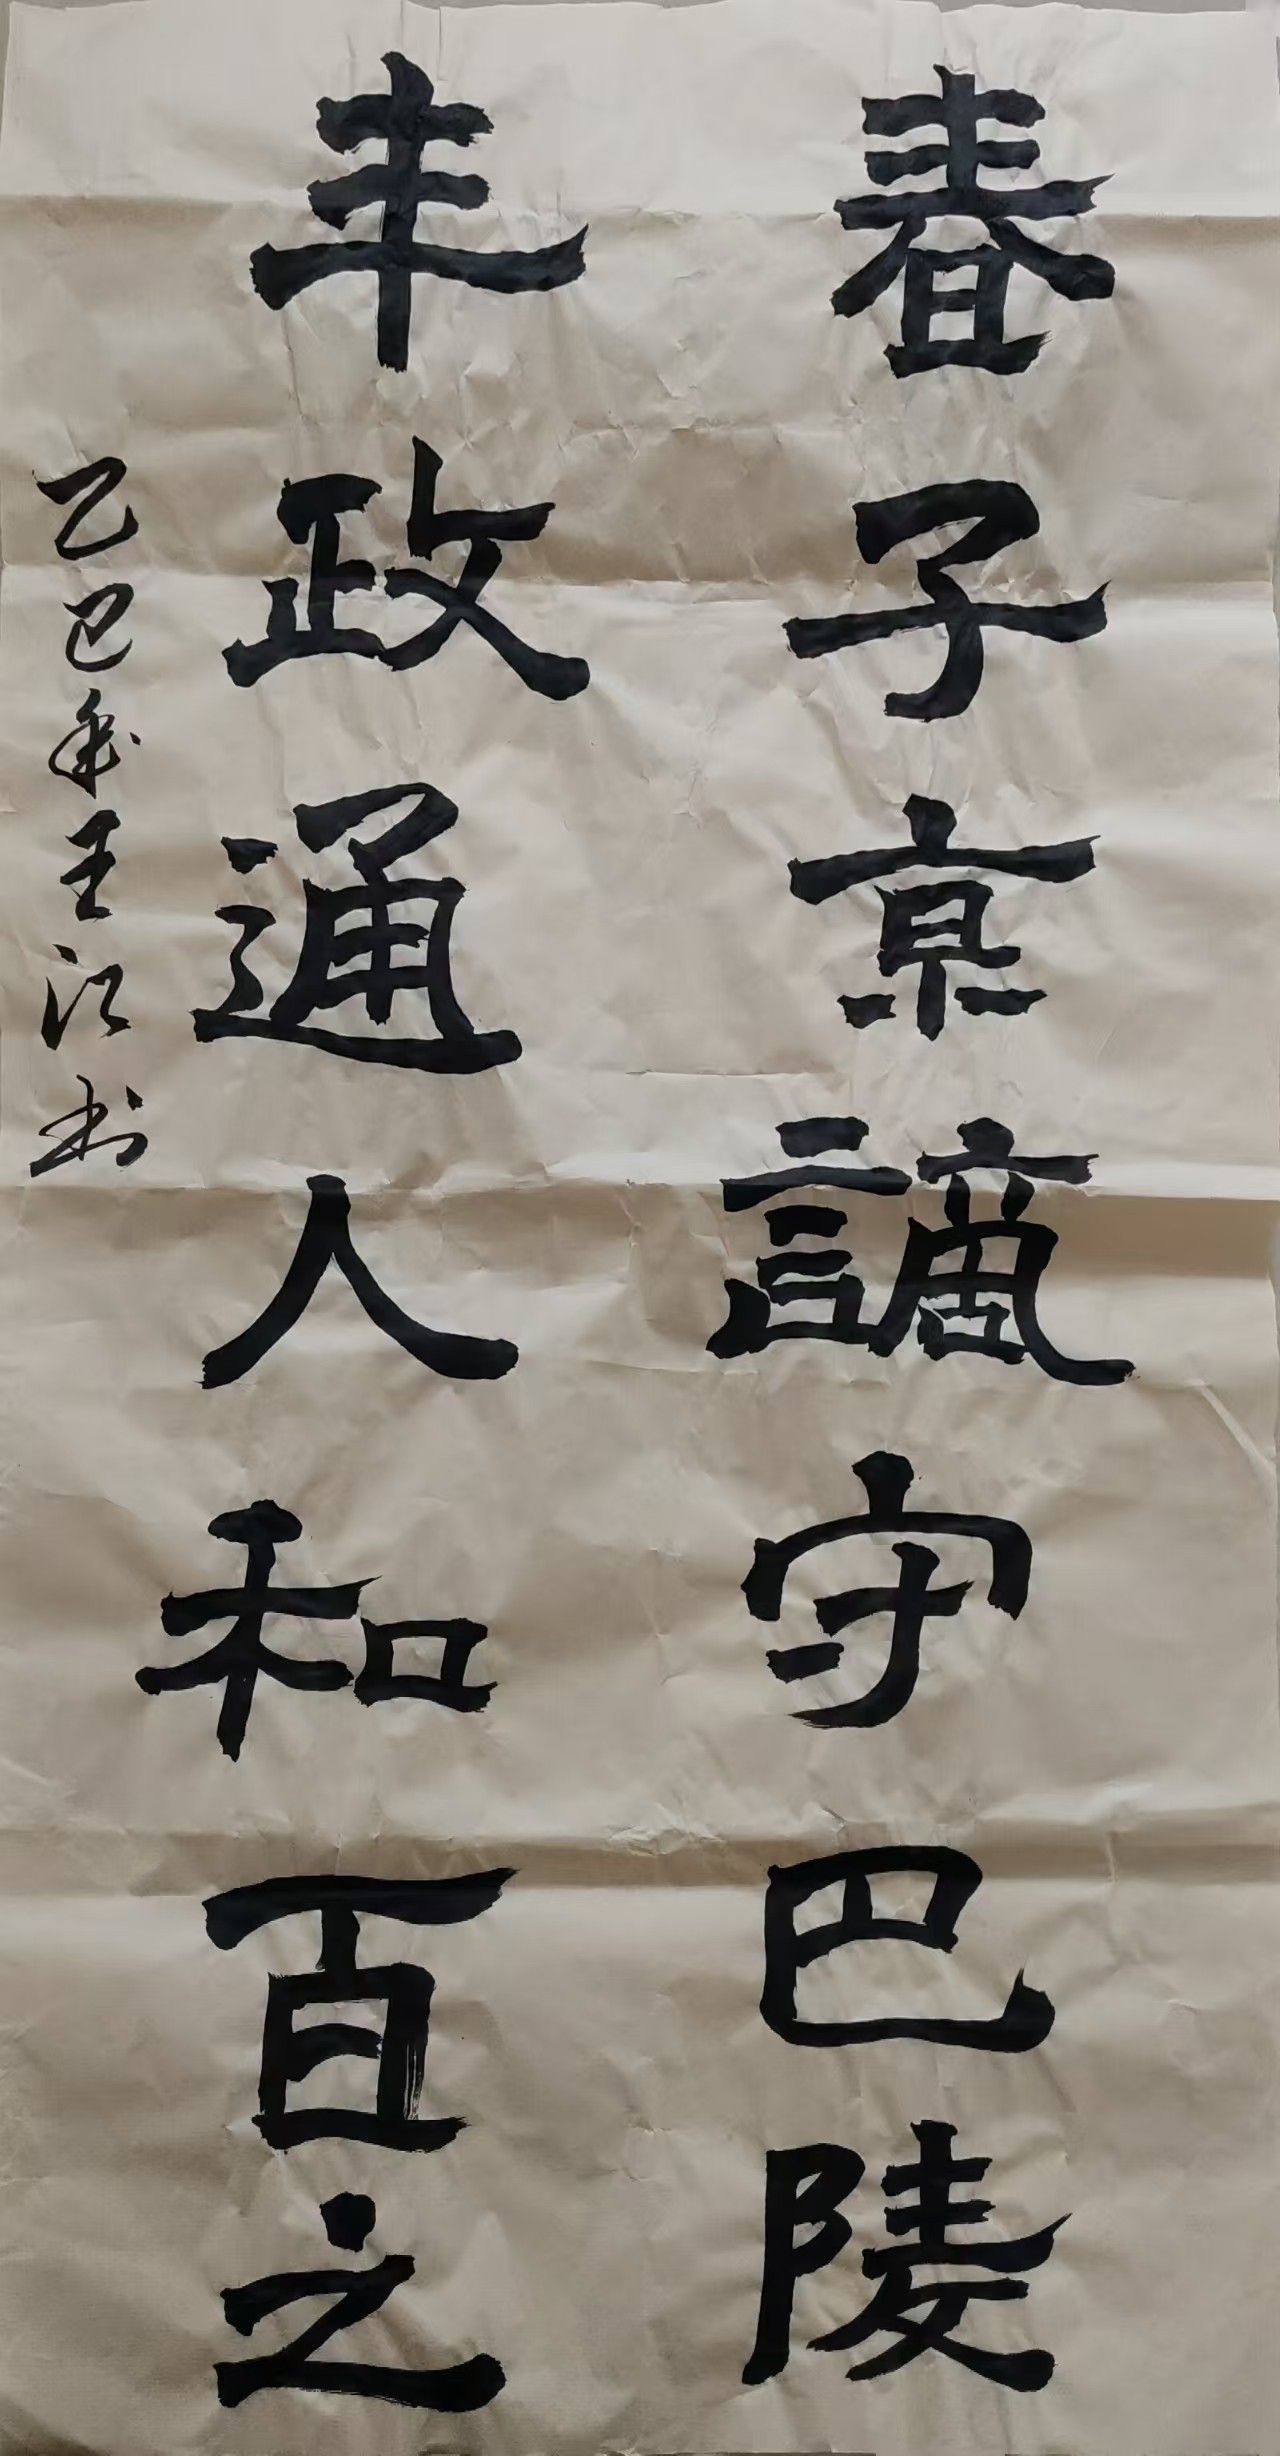 春子京謫守巴陵
丰政通人和百之
乙巳年王江书